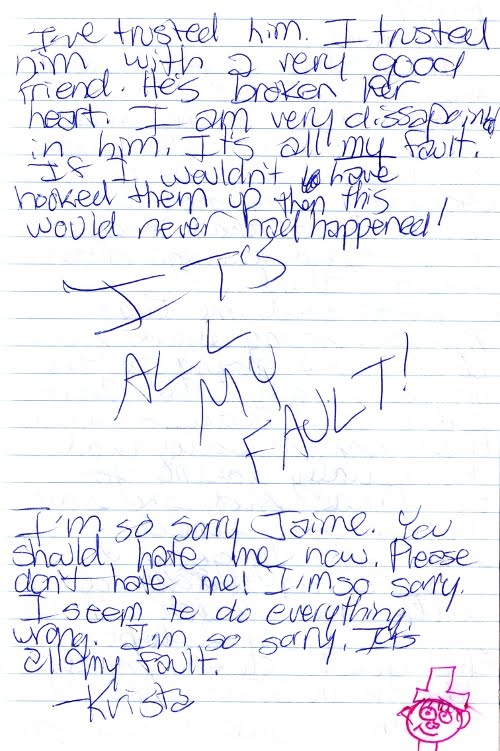 I've trusted him. I trusted
him with a very good
friend. He's broken her
heart. I am very dissapointed
in him. Its all my fault.
If I wouldn't have
hooked them up then this
would never had happened!
IT'S
ALL
MY
FAULT!
I'm so sorry Jaime. You
should hate me now. Please
don't hate me! I'm so sorry.
I seem to do everything
wrong. I'm so sorry. Its
all my fault.
-Krista